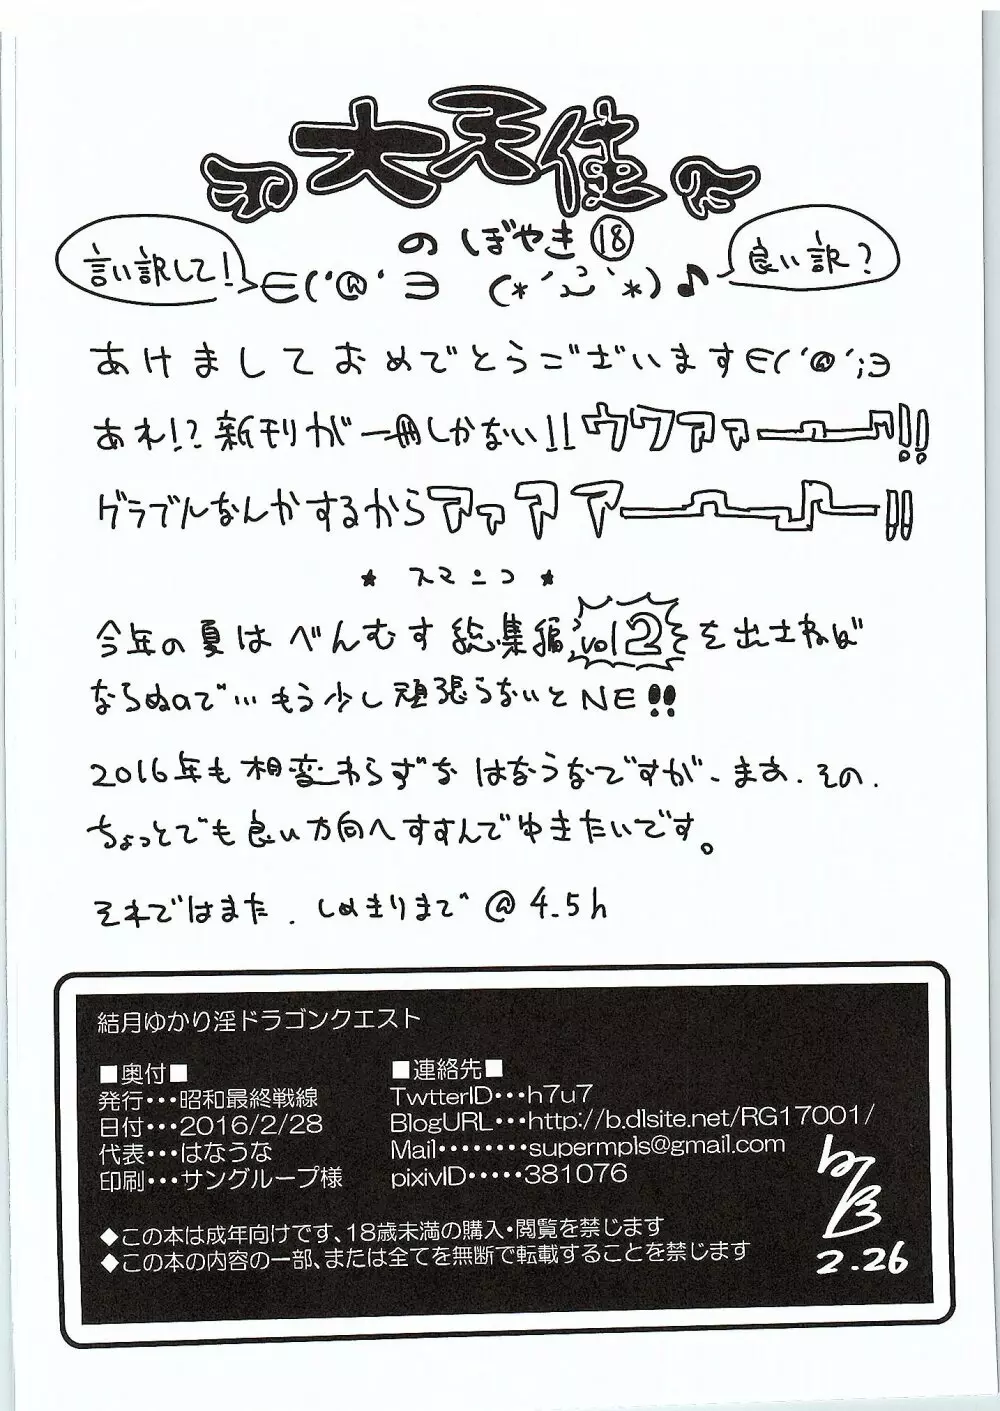 大天使
のぼやき⑱
言い訳して!
∈('@'∋ (*´ω`*)♪
良い訳?
あけましておめでとうございます∈('@';∋
あれ!?新刊が一冊しかない!!ウワアァーーー!!
グラブルなんかするからアァアアーーーー!!
★スマニコ★
今年の夏はべんむす総集編vol2を出さねば
ならぬので…もう少し頑張らないとNE!!
2016年も相変わらずな はなうなですが、まあ、その、
ちょっとでも良い方向へすすんでゆきたいです。
それではまた、しめきりまで@4.5h
結月ゆかり淫ドラゴンクエスト
■奥付■
発行・・・昭和最終戦線
日付・・・2016/2/28
代表・・・はなうな
印刷・・・サングループ様
■連絡先■
TwtterID・・・h7u7
BlogURL・・・http://b.dlsite.net/RG17001/
Mail・・・・・・・・supermpls@gmail.com
pixivID・・・・・381076
◆この本は成年向けです、18歳未満の購入・閲覧を禁じます
◆この本の内容の一部、または全てを無断で転載することを禁じます
2.26